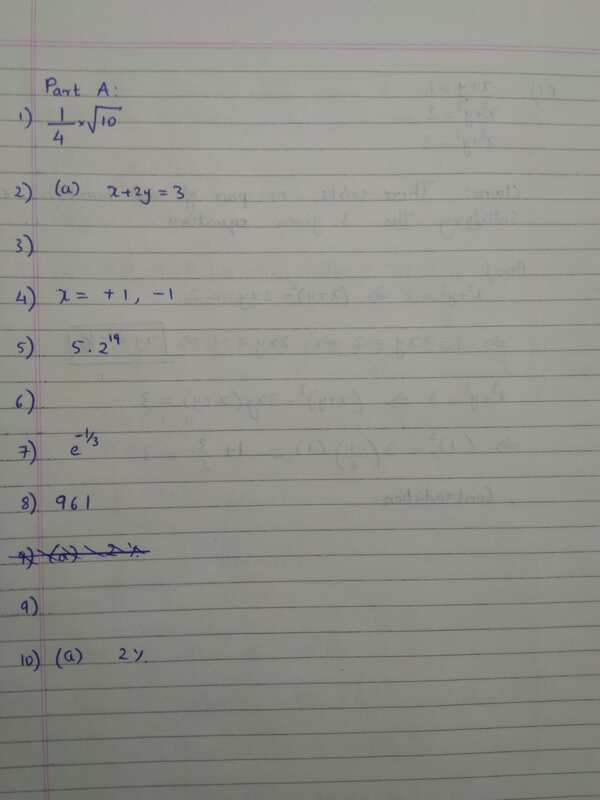 Part A:
1) 1/4 × √10
2) (a) x+2y = 3
3)
4) x = +1, -1
5) 5 . 2^19
6)
7) e^-1/3
8) 961
9) (a) 2%
9)
10) (a) 2%